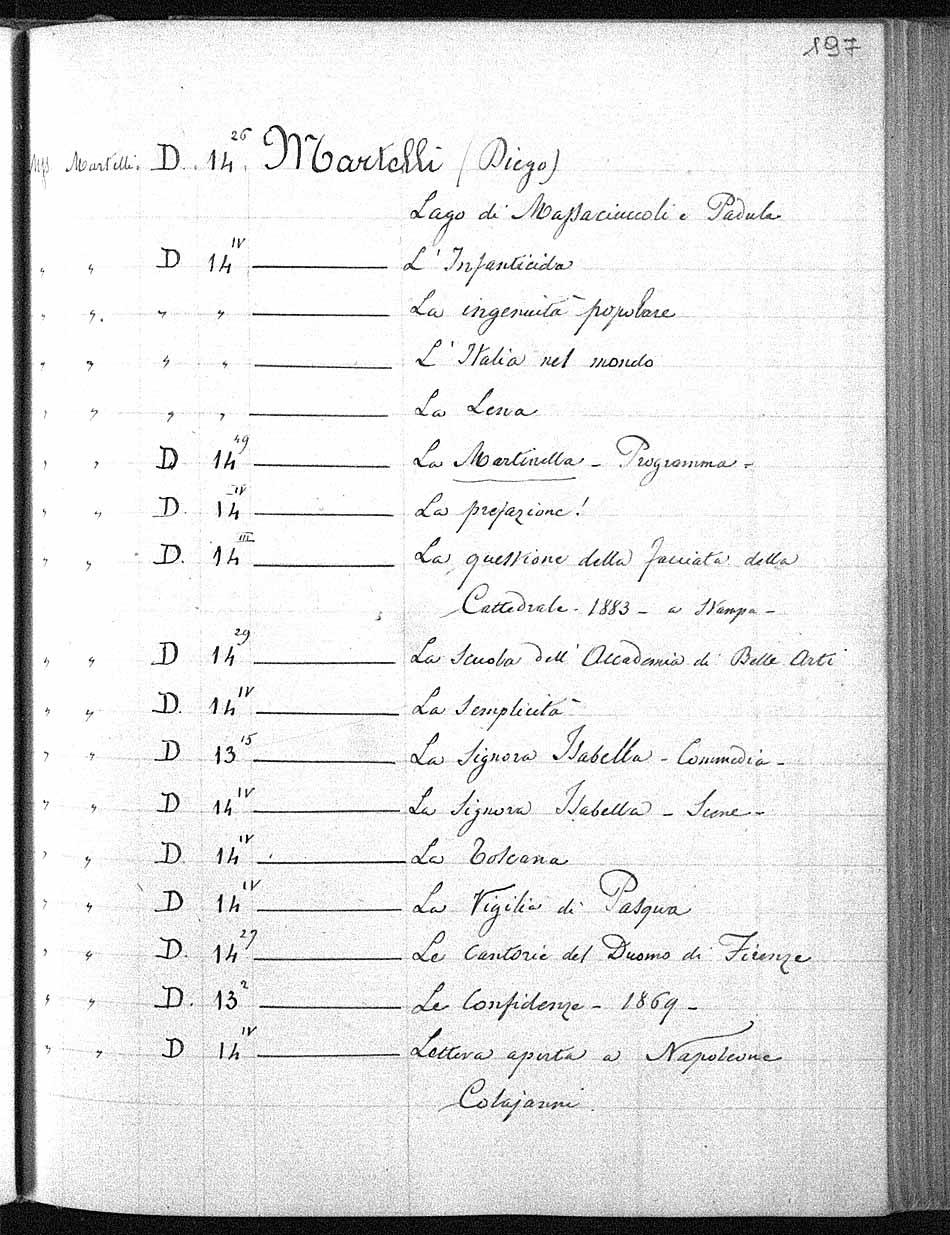 197
Mss Martelli. D. 14 26. Martelli (Diego)
Lago di Massaciuccoli e Padule
" " D 14 IV ——— L'Infanticida
" " " " ——— La ingenuità popolare
" " " " ——— L'Italia nel mondo
" " " " ——— La Lena
" " D 14 49 ——— La Martinella - Programma -
" " D. 14 IV ——— La prefazione!
" " D. 14 III ——— La questione della facciata della
Cattedrale - 1883 - a stampa -
" " D 14 29 ——— La Scuola dell'Accademia di Belle Arti
" " D. 14 IV ——— La Semplicità
" " D 13 15 ——— La Signora Isabella - Commedia -
" " D 14 IV ——— La Signora Isabella - Scene -
" " D. 14 IV ——— La Toscana
" " D 14 IV ——— La Vigilia di Pasqua
" " D. 14 27 ——— Le Cantorie del Duomo di Firenze
" " D. 13 2 ——— Le Confidenze - 1869 -
" " D 14 IV ——— Lettera aperta a Napoleone
Colajanni.